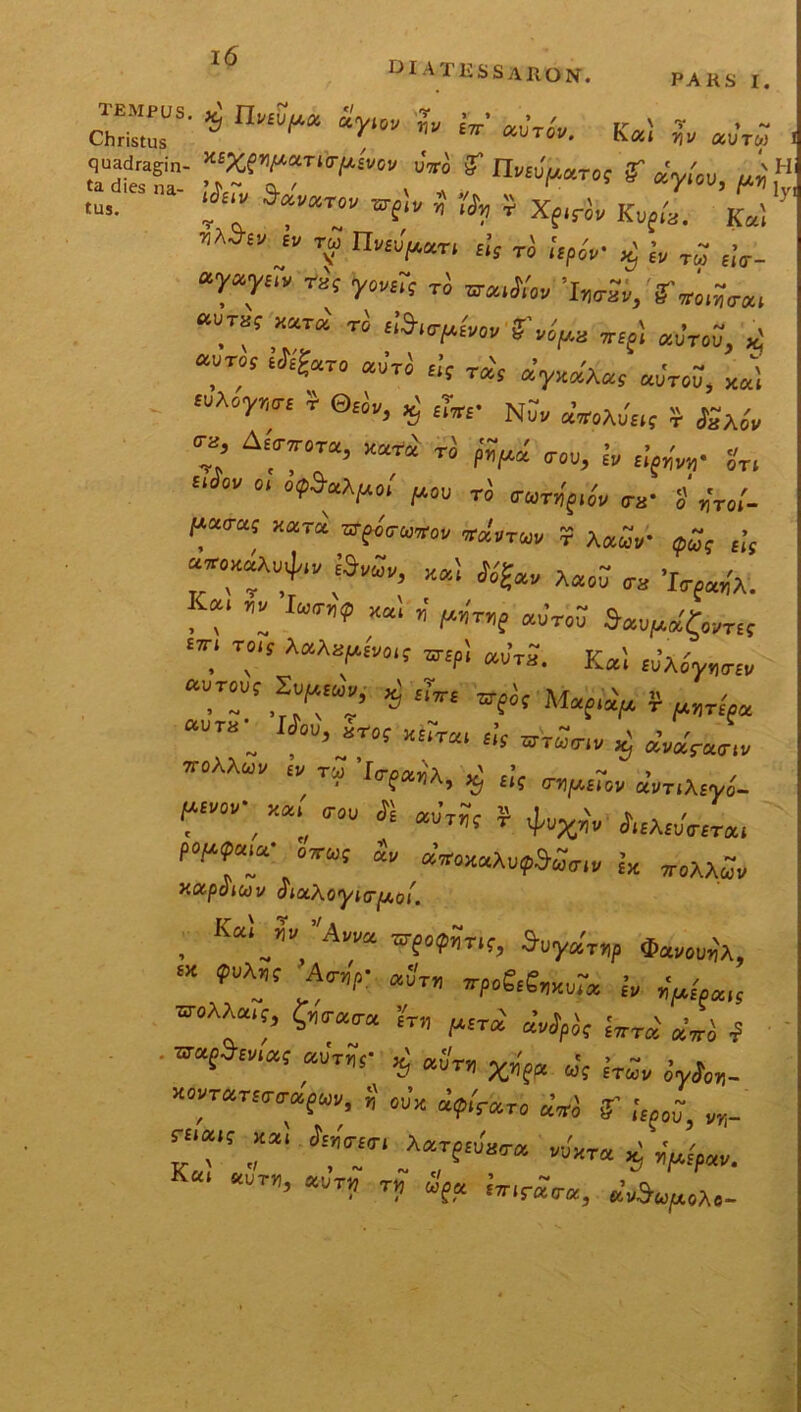 16
DIATESSARON.
PARS I.
TEMPUS.
Christus
quadragin-
ta dies na-
tus.
καὶ Πνεῦμα ἅγιον ἦν ἐπ' αὐτόν. Καὶ ἦν αὐτῷ
κεχρηματισμένον ὑπὸ τοῦ Πνεύματος τοῦ ἁγίου, μὴ
ἰδεῖν θάνατον πρὶν ἢ ἴδῃ τὸν Χριστὸν Κυρίου. Καὶ
ἦλθεν ἐν τῷ Πνεύματι εἰς τὸ ἱερόν· καὶ ἐν τῷ εἰσ-
αγαγεῖν τοὺς γονεῖς τὸ παιδίον Ἰησοῦν, τοῦ ποιῆσαι
αὐτοὺς κατὰ τὸ εἰθισμένον τοῦ νόμου περὶ αὐτοῦ, καὶ
αὐτὸς ἐδέξατο αὐτὸ εἰς τὰς ἀγκάλας αὐτοῦ, καὶ
εὐλόγησε τὸν Θεὸν, καὶ εἶπε· Νῦν ἀπολύεις τὸν δοῦλόν
σου, Δέσποτα, κατὰ τὸ ῥῆμά σου, ἐν εἰρήνῃ· ὅτι
εἶδον οἱ ὀφθαλμοί μου τὸ σωτήριόν σου· ὃ ἡτοί-
μασας κατὰ πρόσωπον πάντων τῶν λαῶν· φῶς εἰς
ἀποκάλυψιν ἐθνῶν, καὶ δόξαν λαοῦ σου Ἰσραήλ.
Καὶ ἦν Ἰωσὴφ καὶ ἡ μήτηρ αὐτοῦ θαυμάζοντες
ἐπὶ τοῖς λαλουμένοις περὶ αὐτοῦ. Καὶ εὐλόγησεν
αὐτοὺς Συμεὼν, καὶ εἶπε πρὸς Μαριὰμ τὴν μητέρα
αὐτοῦ· Ἰδοὺ, οὗτος κεῖται εἰς πτῶσιν καὶ ἀνάστασιν
πολλῶν ἐν τῷ Ἰσραὴλ, καὶ εἰς σημεῖον ἀντιλεγό-
μενον· καὶ σου δὲ αὐτῆς τὴν ψυχὴν διελεύσεται
ῥομφαία· ὅπως ἂν ἀποκαλυφθῶσιν ἐκ πολλῶν
καρδιῶν διαλογισμοί.
Καὶ ἦν Ἄννα προφῆτις, θυγάτηρ Φανουὴλ,
ἐκ φυλῆς Ἀσήρ· αὕτη προβεβηκυῖα ἐν ἡμέραις
πολλαῖς, ζήσασα ἔτη μετὰ ἀνδρὸς ἑπτὰ ἀπὸ τῆς
παρθενίας αὐτῆς· καὶ αὕτη χήρα ὡς ἐτῶν ὀγδοη-
κοντατεσσάρων, ἣ οὐκ ἀφίστατο ἀπὸ τοῦ ἱεροῦ, νη-
στείαις καὶ δεήσεσι λατρεύουσα νύκτα καὶ ἡμέραν.
Καὶ αὕτη, αὐτῇ τῇ ὥρᾳ ἐπιστᾶσα, ἀνθωμολο-